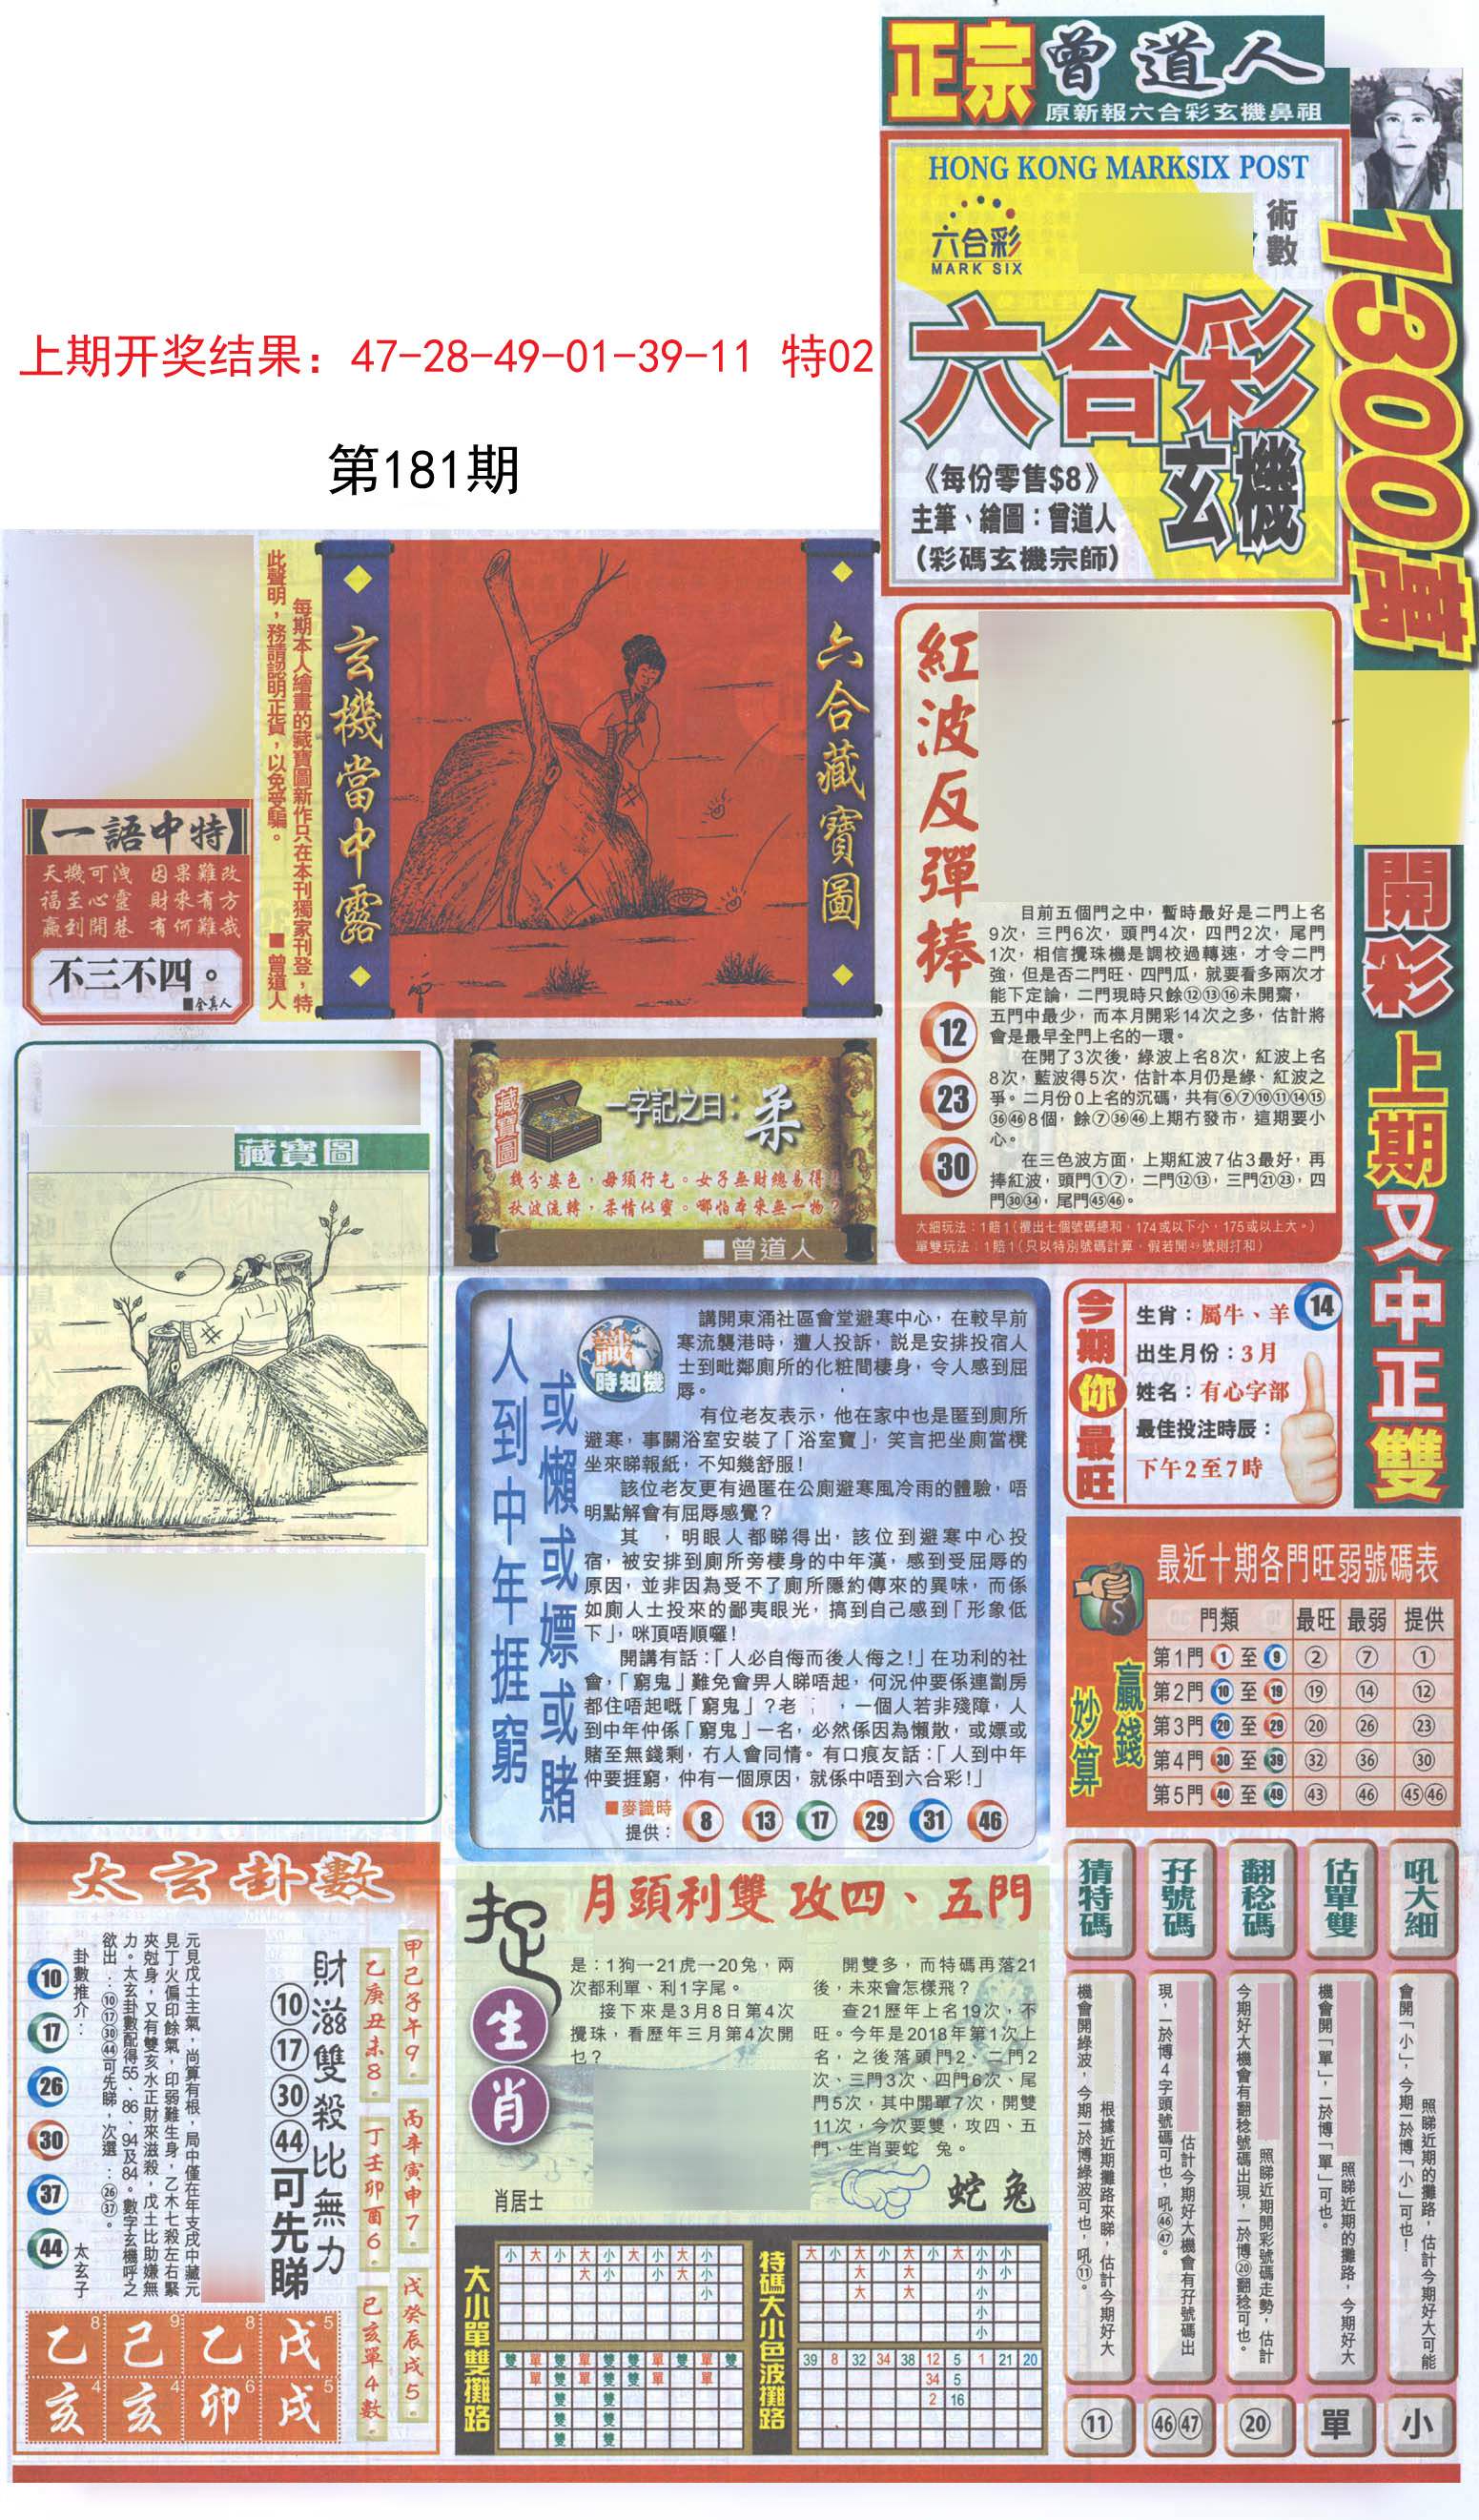 正宗曾道人
原新報六合彩玄機鼻祖
HONG KONG MARKSIX POST
六合彩
MARK SIX
術數
六合彩
玄機
《每份零售$8》
主筆、繪圖:曾道人
(彩碼玄機宗師)
1300萬
開彩上期又中正雙
上期开奖结果：47-28-49-01-39-11 特02
第181期
每期本人繪畫的藏寶圖新作只在本刊獨家刊登，特
此聲明，務請認明正貨，以免受騙。
■曾道人
六合藏寶圖
玄機當中露
一語中特
天機可洩 因果難改
福至心靈 財來有方
贏到開巷 有何難哉
不三不四。
■全真人
紅波反彈棒
12
23
30
目前五個門之中，暫時最好是二門上名
9次，三門6次，頭門4次，四門2次，尾門
1次，相信攪珠機是調校過轉速，才令二門
強，但是否二門旺、四門瓜，就要看多兩次才
能下定論，二門現時只餘⑫⑬⑯未開齋，
五門中最少，而本月開彩14次之多，估計將
會是最早全門上名的一環。
在開了3次後，綠波上名8次，紅波上名
8次，藍波得5次，估計本月仍是綠、紅波之
爭。二月份0上名的沉碼，共有⑥⑦⑩⑪⑭⑮
㊱㊻8個，餘⑦㊱㊻上期冇發市，這期要小
心。
在三色波方面，上期紅波7佔3最好，再
捧紅波，頭門①⑦，二門⑫⑬，三門㉑㉓，四
門㉚㉞，尾門㊺㊻。
大細玩法：1賠1(攪出七個號碼總和，174或以下小，175或以上大。)
單雙玩法：1賠1(只以特別號碼計算，假若開49號則打和)
藏寶圖
藏寶圖
一字記之曰：柔
幾分姿色，毋須行乞。女子無財總易得！
秋波流轉，柔情似蜜。哪怕本來無一物？
■曾道人
人到中年捱窮
或懶或嫖或賭
識時知機
講開東涌社區會堂避寒中心，在較早前
寒流襲港時，遭人投訴，說是安排投宿人
士到毗鄰廁所的化粧間棲身，令人感到屈
辱。
有位老友表示，他在家中也是匿到廁所
避寒，事關浴室安裝了「浴室寶」，笑言把坐廁當櫈
坐來睇報紙，不知幾舒服！
該位老友更有過匿在公廁避寒風冷雨的體驗，唔
明點解會有屈辱感覺？
其 ，明眼人都睇得出，該位到避寒中心投
宿，被安排到廁所旁棲身的中年漢，感到受屈辱的
原因，並非因為受不了廁所隱約傳來的異味，而係
如廁人士投來的鄙夷眼光，搞到自己感到「形象低
下」，咪頂唔順囉！
開講有話：「人必自侮而後人侮之！」在功利的社
會，「窮鬼」難免會畀人睇唔起，何況仲要係連劏房
都住唔起嘅「窮鬼」？老 ，一個人若非殘障，人
到中年仲係「窮鬼」一名，必然係因為懶散，或嫖或
賭至無錢剩，冇人會同情。有口痕友話：「人到中年
仲要捱窮，仲有一個原因，就係中唔到六合彩！」
■麥識時
提供：
8 13 17 29 31 46
今期你最旺
14
生肖：屬牛、羊
出生月份：3月
姓名：有心字部
最佳投注時辰：
下午2至7時
最近十期各門旺弱號碼表
贏錢
妙算
門類 最旺 最弱 提供
第1門 1 至 9 ② ⑦ ①
第2門 10 至 19 ⑲ ⑭ ⑫
第3門 20 至 29 ⑳ ㉖ ㉓
第4門 30 至 39 ㉜ ㊱ ㉚
第5門 40 至 49 ㊸ ㊻ ㊺㊻
太玄卦數
甲己子午9。
乙庚丑未8。
丙辛寅申7。
丁壬卯酉6。
戊癸辰戌5。
巳亥單4數。
財滋雙殺比無力
⑩⑰㉚㊹可先睇
元見戊土主氣，尚算有根，局中僅在年支戌中藏元
見丁火偏印餘氣，印弱難生身，乙木七殺左右緊
夾尅身，又有雙亥水正財來滋殺，戊土比助嫌無
力。太玄卦數配得55、86、94及84。數字玄機呼之
欲出：⑩⑰㉚㊹可先睇，次選：㉖㊲。
卦數推介：
太玄子
10
17
26
30
37
44
乙8 己9 乙8 戊5
亥4 亥4 卯6 戌5
捉生肖
月頭利雙 攻四、五門
是：1狗→21虎→20兔，兩
次都利單、利1字尾。
接下來是3月8日第4次
攪珠，看歷年三月第4次開
乜？
肖居士
開雙多，而特碼再落21
後，未來會怎樣飛？
查21歷年上名19次，不
旺。今年是2018年第1次上
名，之後落頭門2、二門2
次、三門3次、四門6次、尾
門5次，其中開單7次，開雙
11次，今次要雙，攻四、五
門、生肖要蛇 兔。
蛇 兔
大小單雙攤路
小 大 小 大 小 大 小 大 小
大 小 小 大 小
小
雙 單 雙 單 雙 雙 單 雙 單 雙
單 雙 單 雙 雙 單 單
雙 雙
雙 雙
雙 雙
特碼大小色波攤路
大 小 大 小 大 小 大 小 小
大 大 小 小
大 大 小
小
小
39 8 32 34 38 12 5 1 21 20
34 5
2 16
吼大細
照睇近期的攤路，估計今期好大可能
會開「小」，今期一於博「小」可也！
小
估單雙
照睇近期的攤路，今期好大
機會開「單」，一於博「單」可也。
單
翻稔碼
照睇近期開彩號碼走勢，估計
今期好大機會有翻稔號碼出現，一於博⑳翻稔可也。
⑳
孖號碼
估計今期好大機會有孖號碼出
現，一於博4字頭號碼可也，吼㊻㊼。
㊻㊼
猜特碼
根據近期攤路來睇，估計今期好大
機會開綠波，今期一於博綠波可也，吼⑪。
⑪